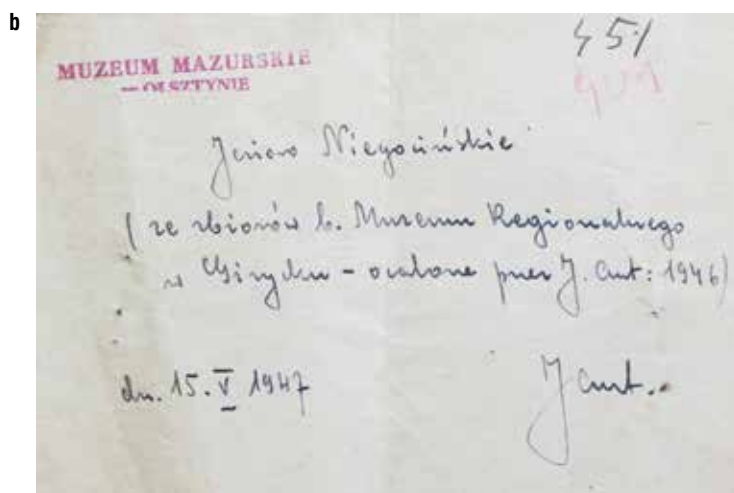 b
MUZEUM MAZURSKIE
— OLSZTYNIE
451
401
Jezioro Niegocińskie
(ze zbiorów b. Muzeum Regionalnego
w Giżycku - ocalone przez J. Ant: 1946)
dn. 15. V 1947
J Ant..